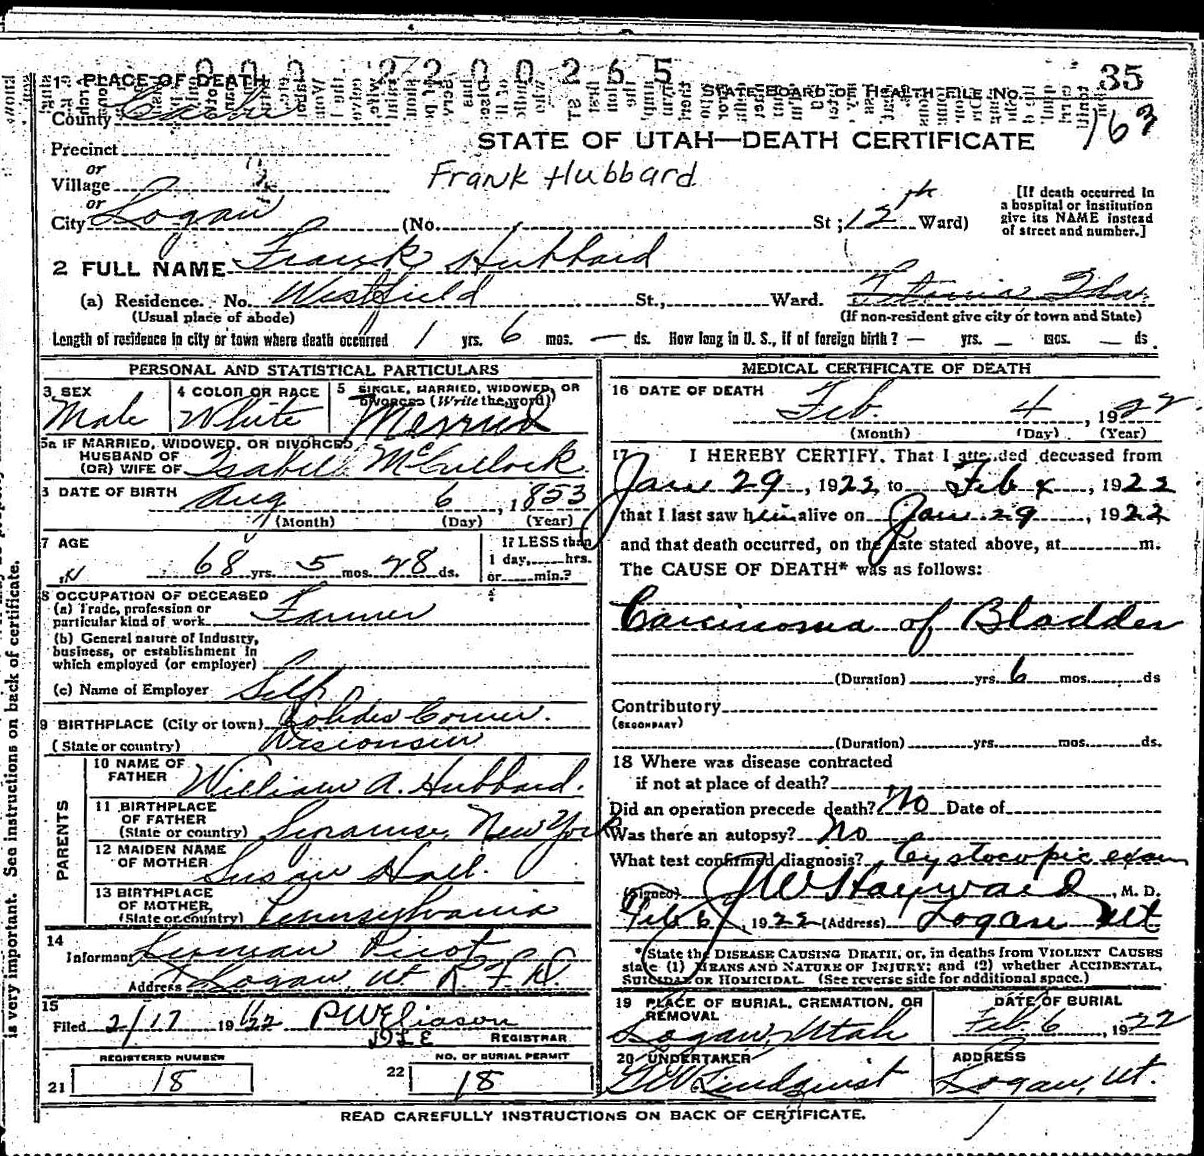 0002200265
1 PLACE OF DEATH
STATE BOARD OF HEALTH FILE NO. 35
County Cache
163
STATE OF UTAH—DEATH CERTIFICATE
Precinct
or
Village
Frank Hubbard
or
City Logan (No. St; 12th Ward)
[If death occurred in a hospital or institution give its NAME instead of street and number.]
2 FULL NAME Frank Hubbard
(a) Residence. No. Westfield St., Ward. Ida.
(Usual place of abode) (If non-resident give city or town and State)
Length of residence in city or town where death occurred 1 yrs. 6 mos. — ds. How long in U. S., if of foreign birth? — yrs. — mos. — ds.
PERSONAL AND STATISTICAL PARTICULARS
3 SEX Male
4 COLOR OR RACE White
5 SINGLE, MARRIED, WIDOWED, OR DIVORCED (Write the word) Married
5a IF MARRIED, WIDOWED, OR DIVORCED
HUSBAND OF
(OR) WIFE OF Isabell McCullock
DATE OF BIRTH Aug 6, 1853
(Month) (Day) (Year)
7 AGE 68 yrs. 5 mos. 28 ds.
If LESS than 1 day, hrs. or min.?
8 OCCUPATION OF DECEASED
(a) Trade, profession or particular kind of work Farmer
(b) General nature of Industry, business, or establishment in which employed (or employer)
(c) Name of Employer Self
9 BIRTHPLACE (City or town) Corner.
(State or country) Wisconsin
PARENTS
10 NAME OF FATHER William A. Hubbard.
11 BIRTHPLACE OF FATHER (State or country) Syracuse, New York
12 MAIDEN NAME OF MOTHER Susan Hall.
13 BIRTHPLACE OF MOTHER, (State or country) Pennsylvania
14
Informant Picot
Address Logan, Ut R.F.D.
15
Filed 2/17 1922 P W Eliason
REGISTRAR
REGISTERED NUMBER
21 18
NO. OF BURIAL PERMIT
22 18
MEDICAL CERTIFICATE OF DEATH
16 DATE OF DEATH Feb 4, 1922
(Month) (Day) (Year)
17 I HEREBY CERTIFY, That I attended deceased from
Jan 29, 1922, to Feb 4, 1922
that I last saw him alive on Jan 29, 1922
and that death occurred, on the date stated above, at m.
The CAUSE OF DEATH* was as follows:
Carcinoma of Bladder
(Duration) yrs. 6 mos. ds
Contributory
(SECONDARY)
(Duration) yrs. mos. ds.
18 Where was disease contracted
if not at place of death?
Did an operation precede death? No Date of
Was there an autopsy? No
What test confirmed diagnosis? Cystocopic exam
(Signed) J W Hayward, M. D.
Feb 6, 1922 (Address) Logan Ut
*State the DISEASE CAUSING DEATH, or, in deaths from VIOLENT CAUSES
state (1) MEANS AND NATURE OF INJURY; and (2) whether ACCIDENTAL,
SUICIDAL OR HOMICIDAL. (See reverse side for additional space.)
19 PLACE OF BURIAL, CREMATION, OR REMOVAL
Logan, Utah
DATE OF BURIAL
Feb. 6, 1922
20 UNDERTAKER
G W Lindquist
ADDRESS
Logan, Ut.
READ CAREFULLY INSTRUCTIONS ON BACK OF CERTIFICATE.
is very important. See instructions on back of certificate.